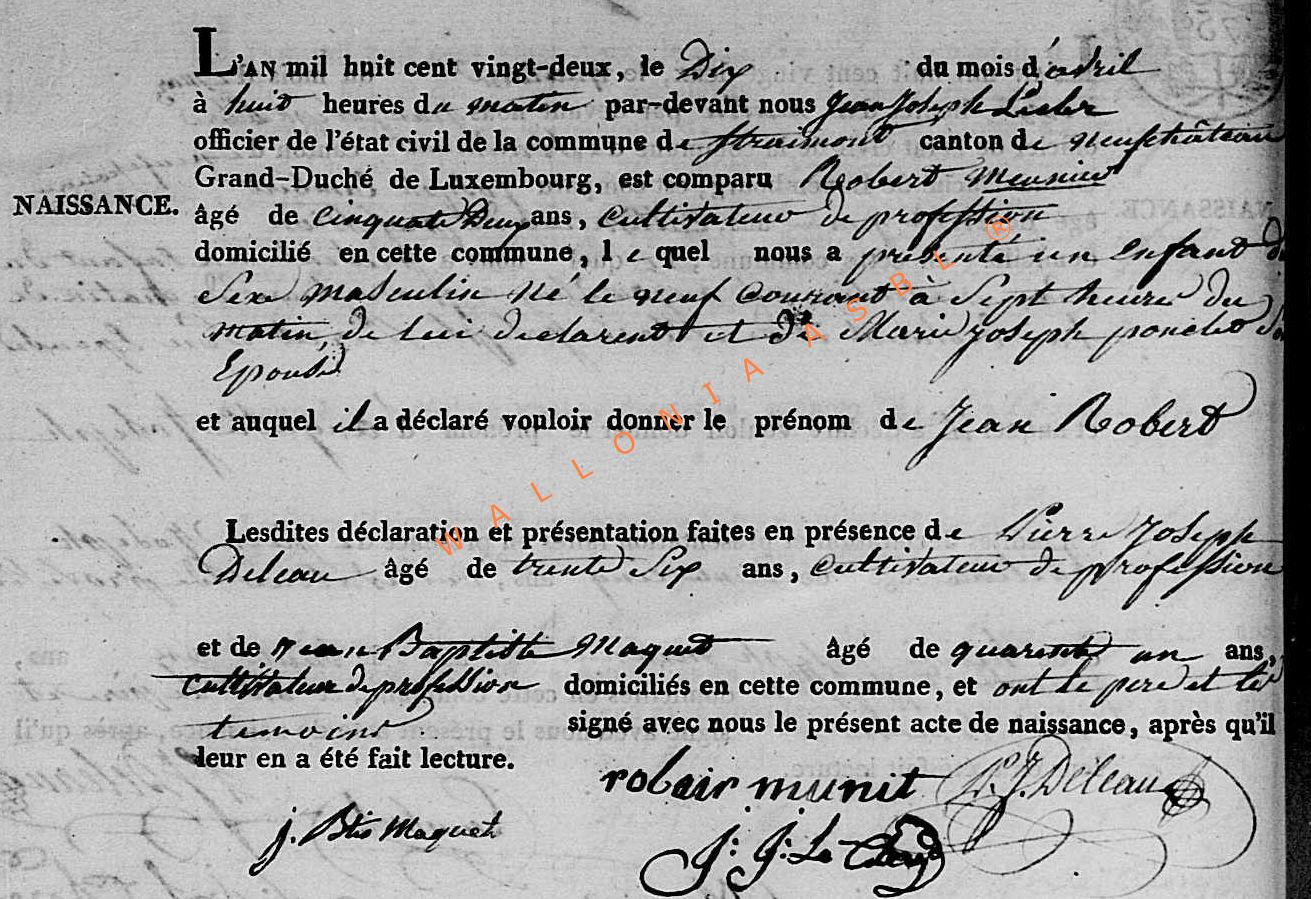 L'AN mil huit cent vingt-deux, le Dix du mois d'avril
à huit heures du matin par-devant nous Jean Joseph
officier de l'état civil de la commune de Straimont canton de neufchâteau
Grand-Duché de Luxembourg, est comparu Robert Meunier
NAISSANCE.
âgé de cinquate Deux ans, cultivateur de profession
domicilié en cette commune, le quel nous a présenté un enfant du
Sexe masculin né le neuf courant à Sept heure du
matin, de lui declarent et de Marie joseph poncelet Son
Epouse
et auquel il a déclaré vouloir donner le prénom de Jean Robert
Lesdites déclaration et présentation faites en présence de Pierre Joseph
Deleau âgé de trente Six ans, cultivateur de profession
et de Jean Baptiste Maquet âgé de quarente un ans,
cultivateur de profession domiciliés en cette commune, et ont le pere et les
temoins signé avec nous le présent acte de naissance, après qu'il
leur en a été fait lecture.
robair munit P. J. Deleau
j. Bte Maquet
J: J: Le
WALLONIA ASBL ®